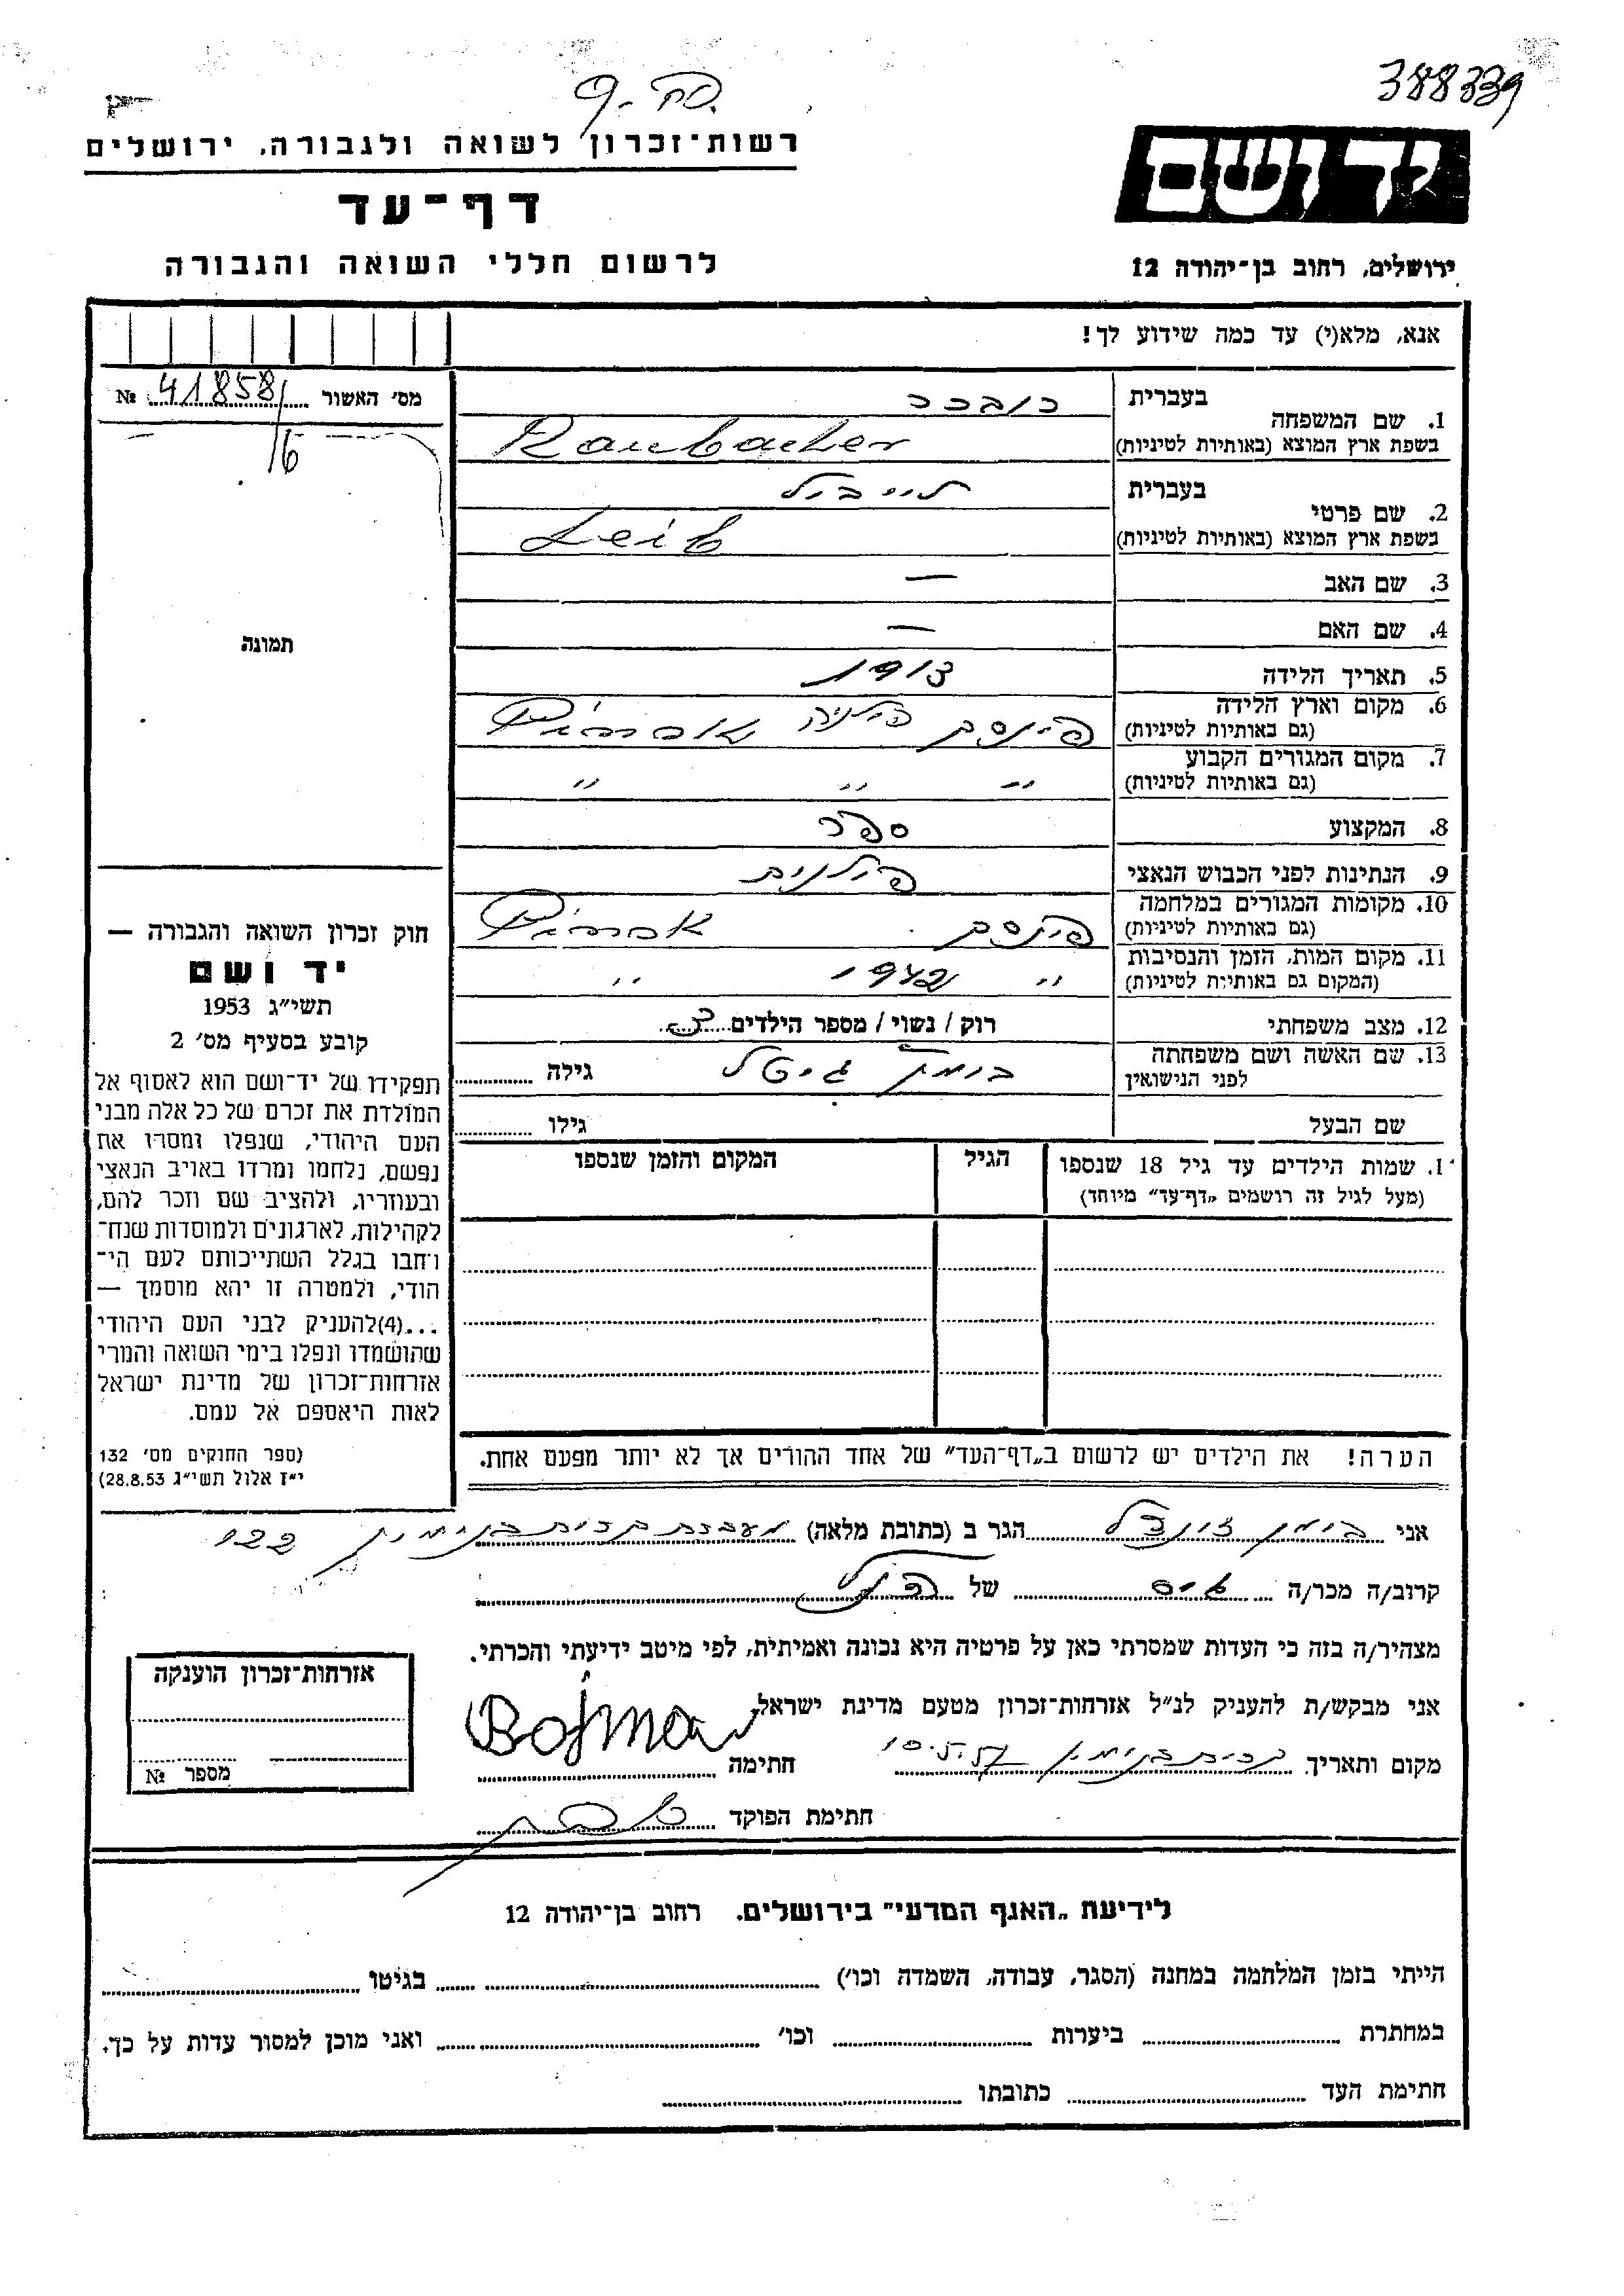 388339
פה. 9
יד ושם
ירושלים, רחוב בן־יהודה 12
רשות־זכרון לשואה ולגבורה, ירושלים
דף־עד
לרשום חללי השואה והגבורה
אנא, מלא(י) עד כמה שידוע לך!
מס׳ האשור 41858 №
16
תמונה
בעברית
1. שם המשפחה
בשפת ארץ המוצא (באותיות לטיניות) Raubacher
בעברית לייביל
2. שם פרטי
בשפת ארץ המוצא (באותיות לטיניות) Leib
3. שם האב —
4. שם האם —
5. תאריך הלידה 1913
6. מקום וארץ הלידה פינסק פולניה
(גם באותיות לטיניות)
7. מקום המגורים הקבוע
(גם באותיות לטיניות) " " "
8. המקצוע ספר
9. הנתינות לפני הכבוש הנאצי פולנית
10. מקומות המגורים במלחמה פינסק
(גם באותיות לטיניות)
11. מקום המות, הזמן והנסיבות " 1942 "
(המקום גם באותיות לטיניות)
12. מצב משפחתי רוק / נשוי / מספר הילדים 3
13. שם האשה ושם משפחתה בוימן גיטל גילה
לפני הנישואין
שם הבעל גילו
1. שמות הילדים עד גיל 18 שנספו הגיל המקום והזמן שנספו
(מעל לגיל זה רושמים „דף־עד״ מיוחד)
הערה! את הילדים יש לרשום ב„דף־העד״ של אחד ההורים אך לא יותר מפעם אחת.
חוק זכרון השואה והגבורה —
יד ושם
תשי״ג 1953
קובע בסעיף מס׳ 2
תפקידו של יד־ושם הוא לאסוף אל
המולדת את זכרם של כל אלה מבני
העם היהודי, שנפלו ומסרו את
נפשם, נלחמו ומרדו באויב הנאצי
ובעוזריו, ולהציב שם וזכר להם,
לקהילות, לארגונים ולמוסדות שנח־
רחבו בגלל השתייכותם לעם הי־
הודי, ולמטרה זו יהא מוסמך —
...(4)להעניק לבני העם היהודי
שהושמדו ונפלו בימי השואה והמרי
אזרחות־זכרון של מדינת ישראל
לאות היאספם אל עמם.
(ספר החוקים מס׳ 132
י״ז אלול תשי״ג 28.8.53)
אני בוימן זונדל הגר ב (כתובת מלאה) מעברת קרית בנימין 122
קרוב/ה מכר/ה גיס של הנ״ל
מצהיר/ה בזה כי העדות שמסרתי כאן על פרטיה היא נכונה ואמיתית, לפי מיטב ידיעתי והכרתי.
אני מבקש/ת להעניק לנ״ל אזרחות־זכרון מטעם מדינת ישראל.
מקום ותאריך קרית בנימין 10.5.57 חתימה Bojman
חתימת הפוקד
אזרחות־זכרון הוענקה
מספר №
לידיעת „האגף המדעי״ בירושלים. רחוב בן־יהודה 12
הייתי בזמן המלחמה במחנה (הסגר, עבודה, השמדה וכו׳) בגיטו
במחתרת ביערות וכו׳ ואני מוכן למסור עדות על כך.
חתימת העד כתובתו